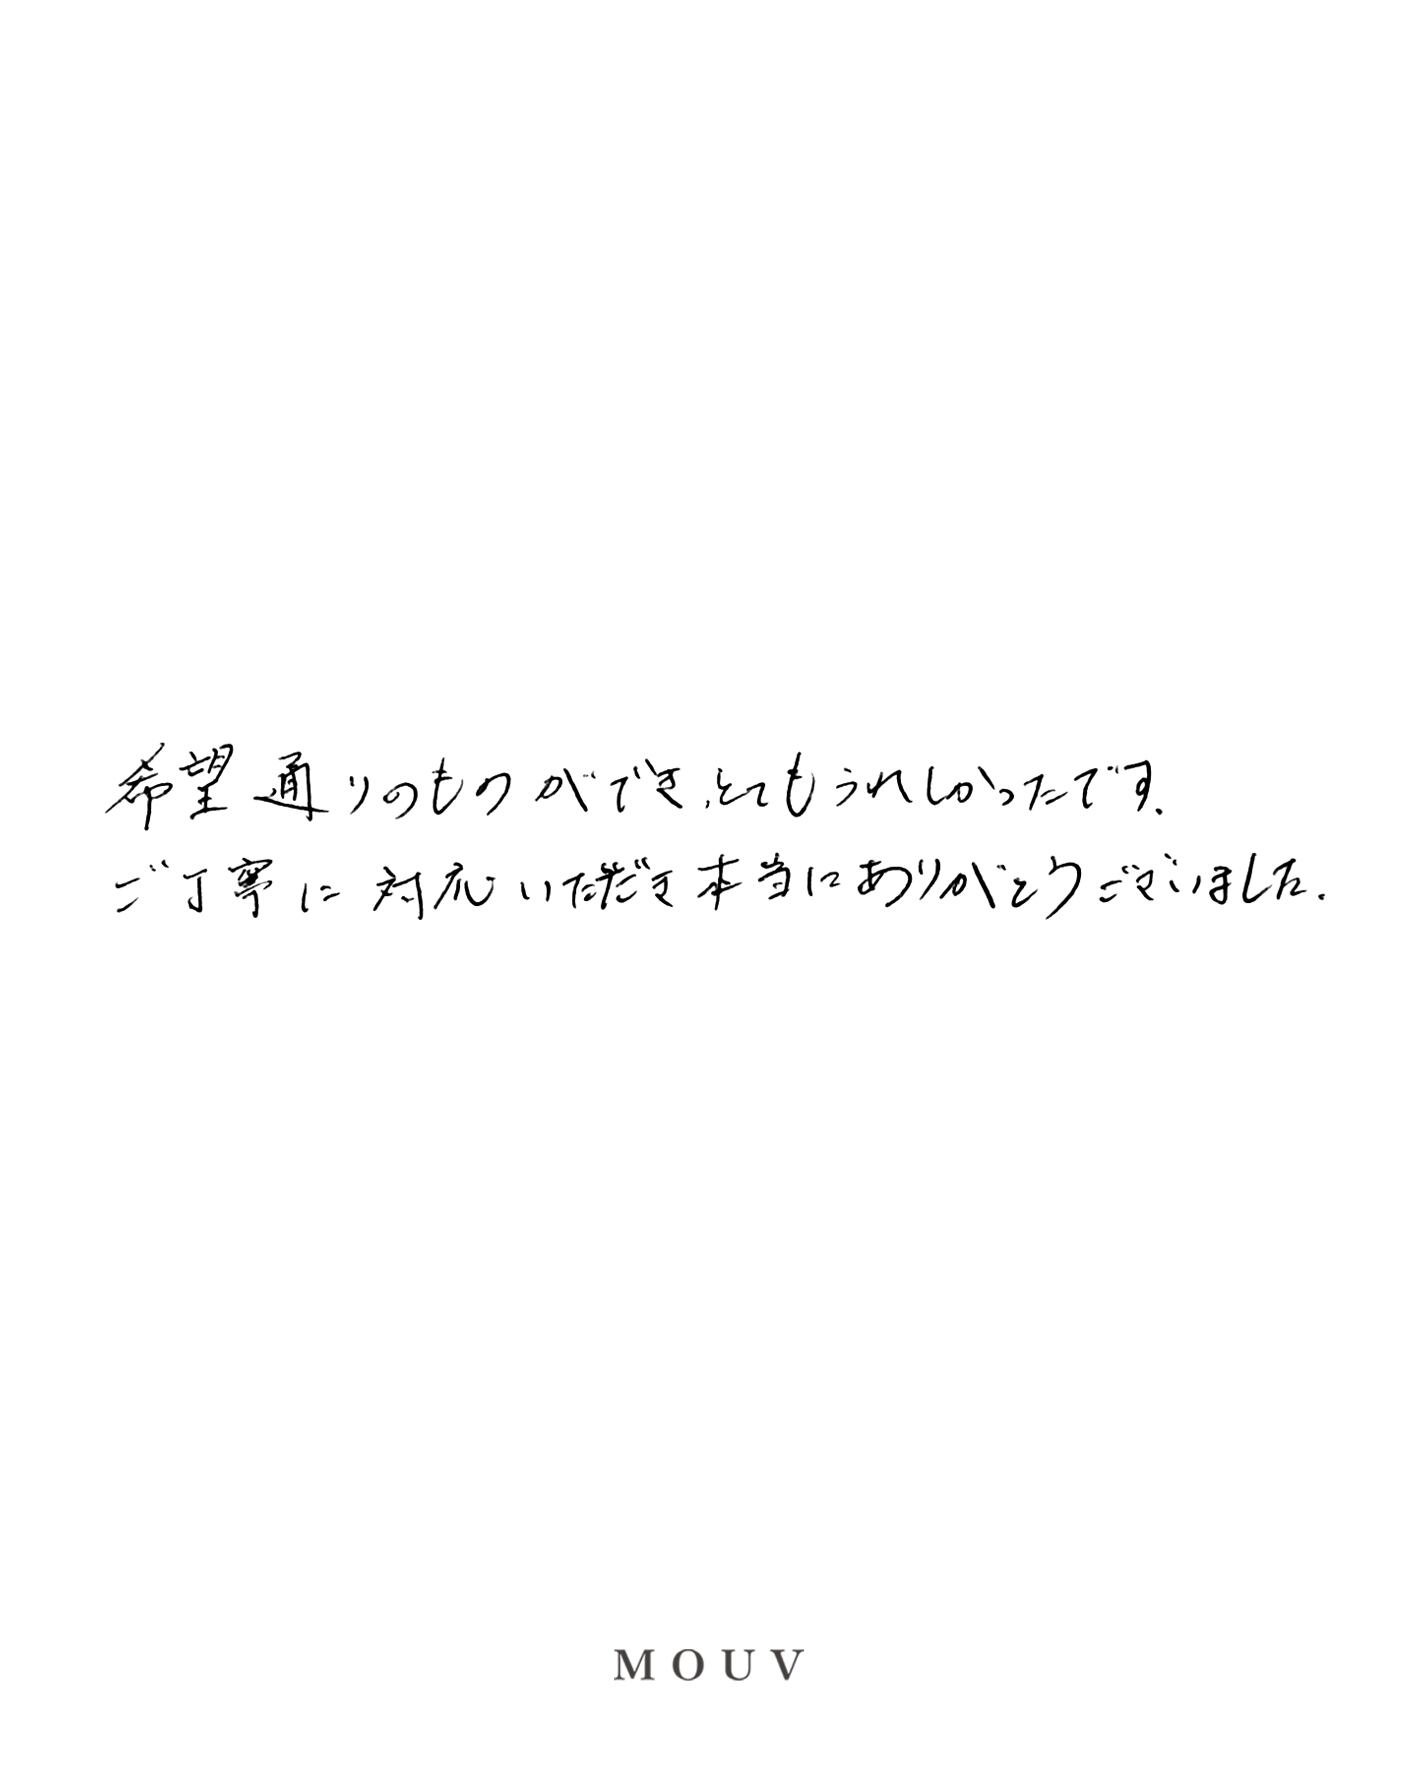 希望通りのものができ、とてもうれしかったです。
ご丁寧に対応いただき本当にありがとうございました。
MOUV